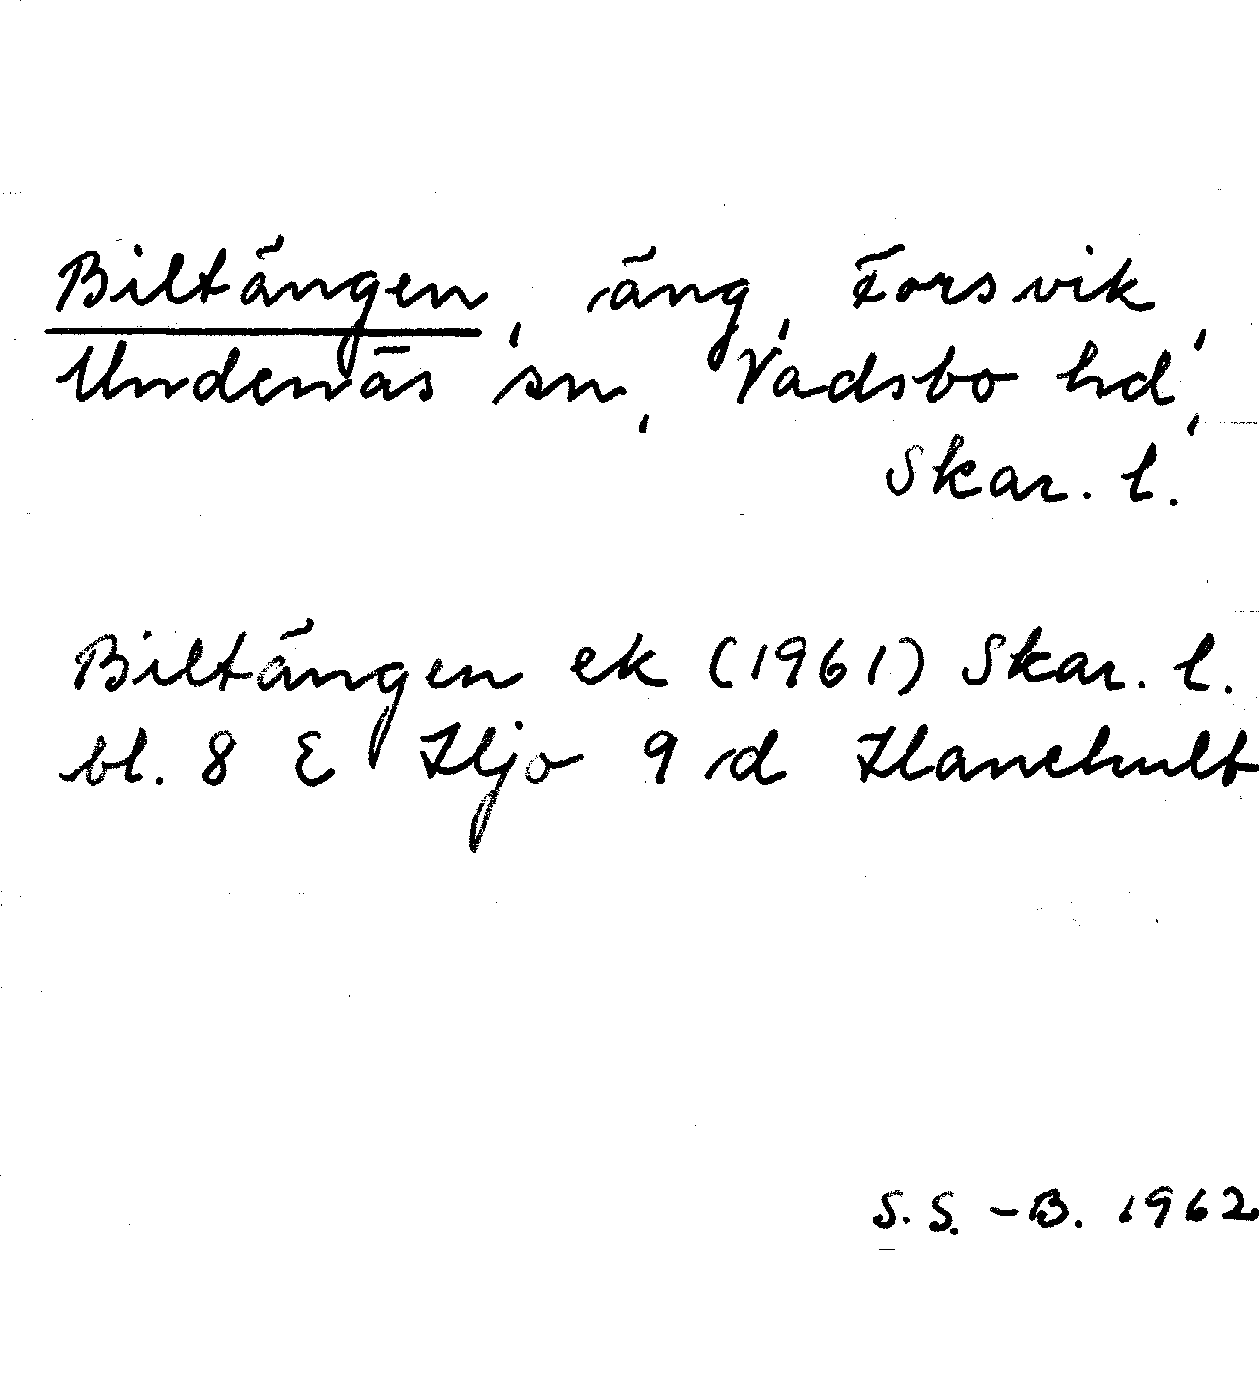 Biltängen, äng, Forsvik,
Undenäs sn, Vadsbo hd,
Skar. l.
Biltängen ek (1961) Skar. l.
bl. 8 E Hjo 9 d Hanehult
S. S. -B. 1962